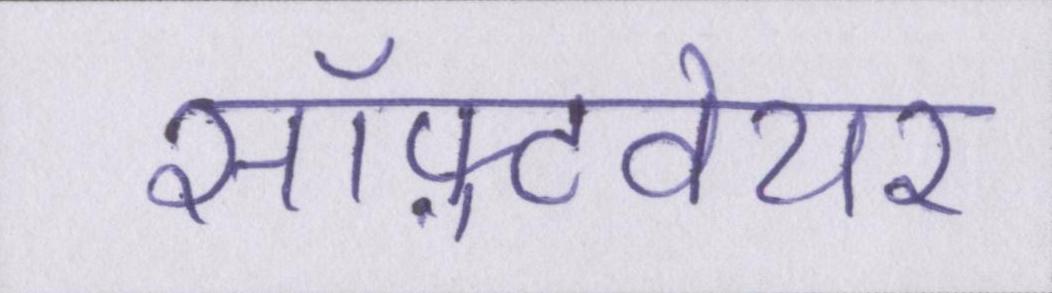 सॉफ़्टवेयर